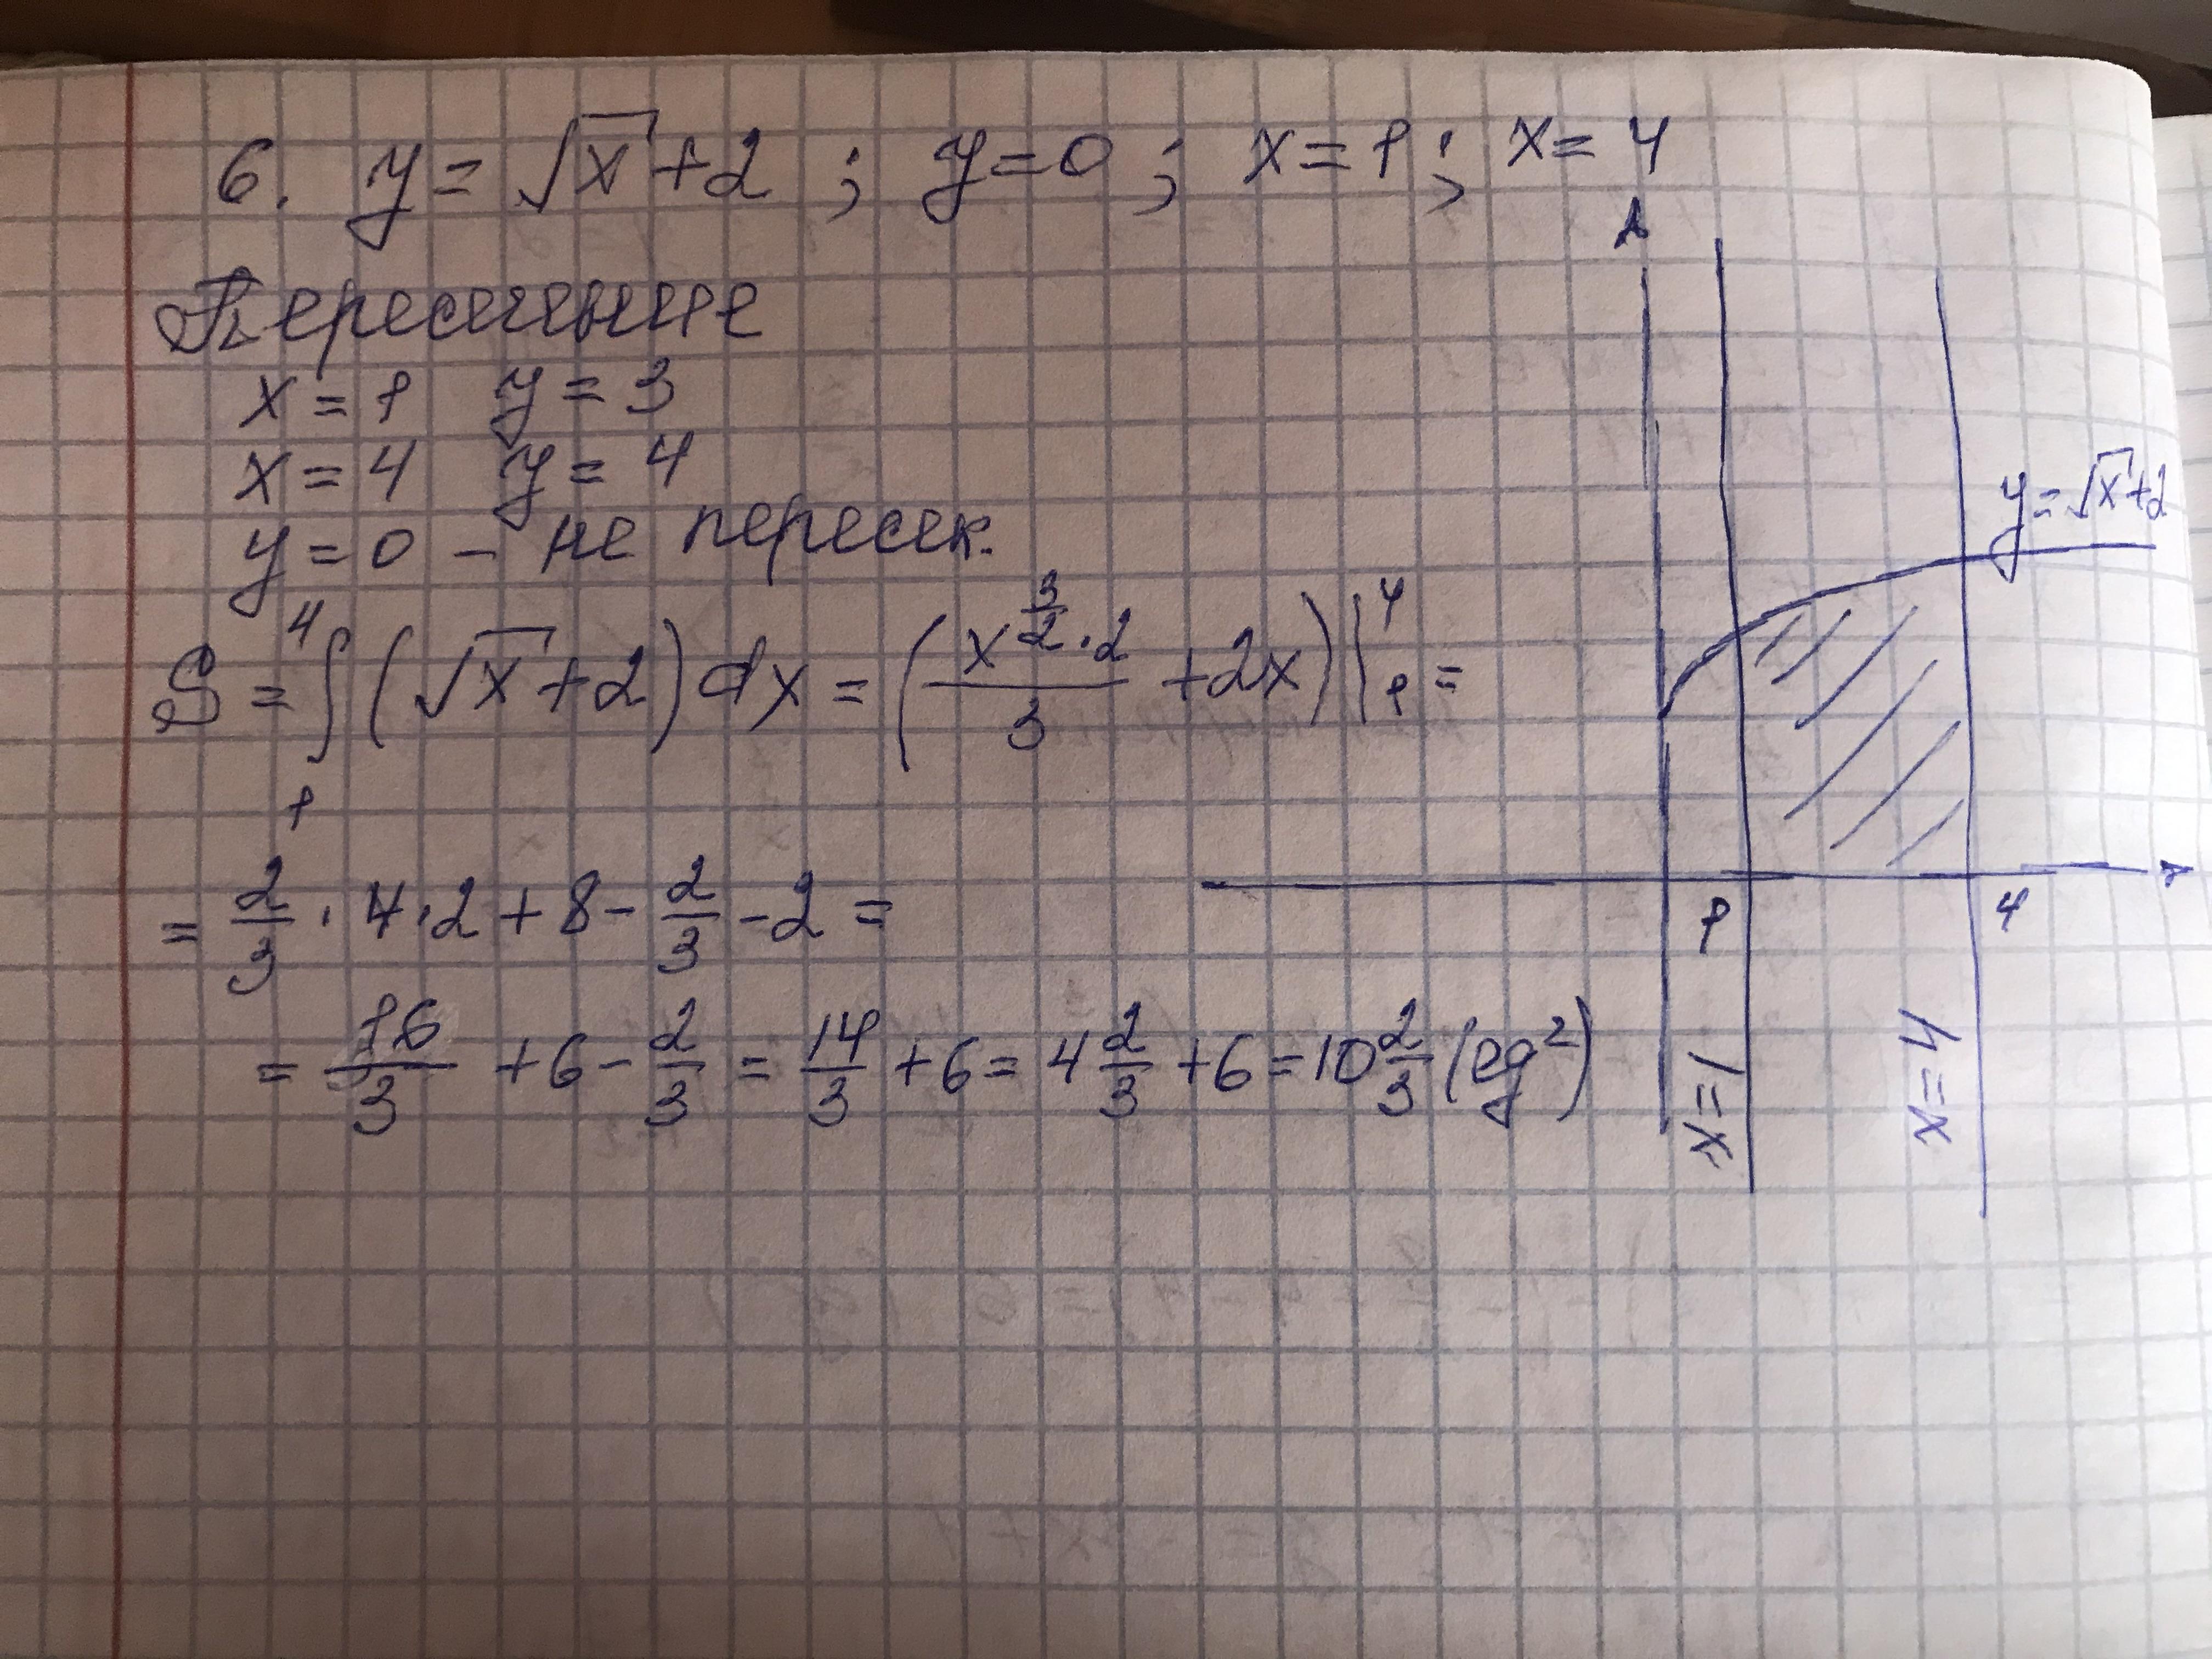 6. y = √x + 2 ; y = 0 ; x = 1 ; x = 4
Пересечение
x = 1 y = 3
x = 4 y = 4
y = 0 – не пересек.
S = ∫₁⁴ (√x + 2) dx = (x^(3/2) · 2 / 3 + 2x) |₁⁴ =
= 2/3 · 4 · 2 + 8 - 2/3 - 2 =
= 16/3 + 6 - 2/3 = 14/3 + 6 = 4 2/3 + 6 = 10 2/3 (ед²)
y = √x + 2
1 4
x = 1
x = 4